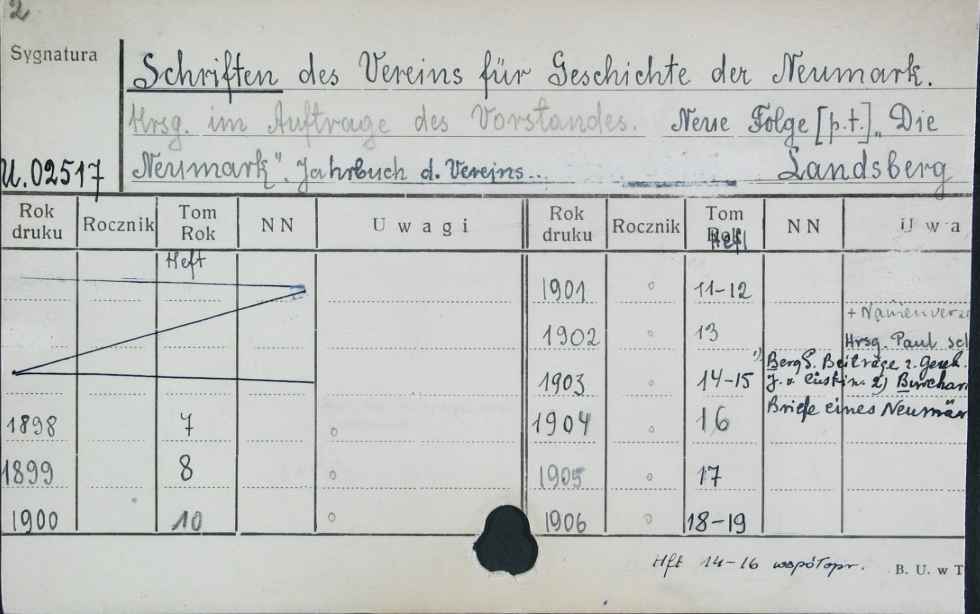 2
Sygnatura
Schriften des Vereins für Geschichte der Neumark.
Hrsg. im Auftrage des Vorstandes. Neue Folge [p.t.] „Die
U.02517 Neumark". Jahrbuch d. Vereins.. Landsberg
Rok druku Rocznik Tom Rok NN Uwagi Rok druku Rocznik Tom Rok Heft NN Uwa
Heft
1901 11-12
1902 13 + Namenverz
Hrsg. Paul Sch
1903 14-15 1) Berg G. Beiträge z. Gesch.
J. v. Cüstrin 2) Burchar
1898 7 1904 16 Briefe eines Neumär
1899 8 1905 17
1900 10 1906 18-19
Hft 14-16 współopr. B. U. w T